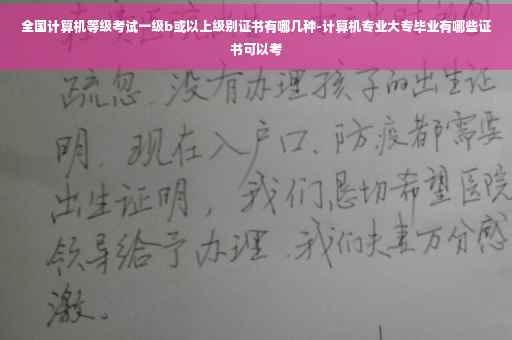 全国计算机等级考试一级b或以上级别证书有哪几种-计算机专业大专毕业有哪些证
书可以考
疏忽.没有办理孩子的出生证
明.现在入户口、防疫都需要
出生证明，我们恳切希望医院
领导给予办理.我们夫妻万分感
激。